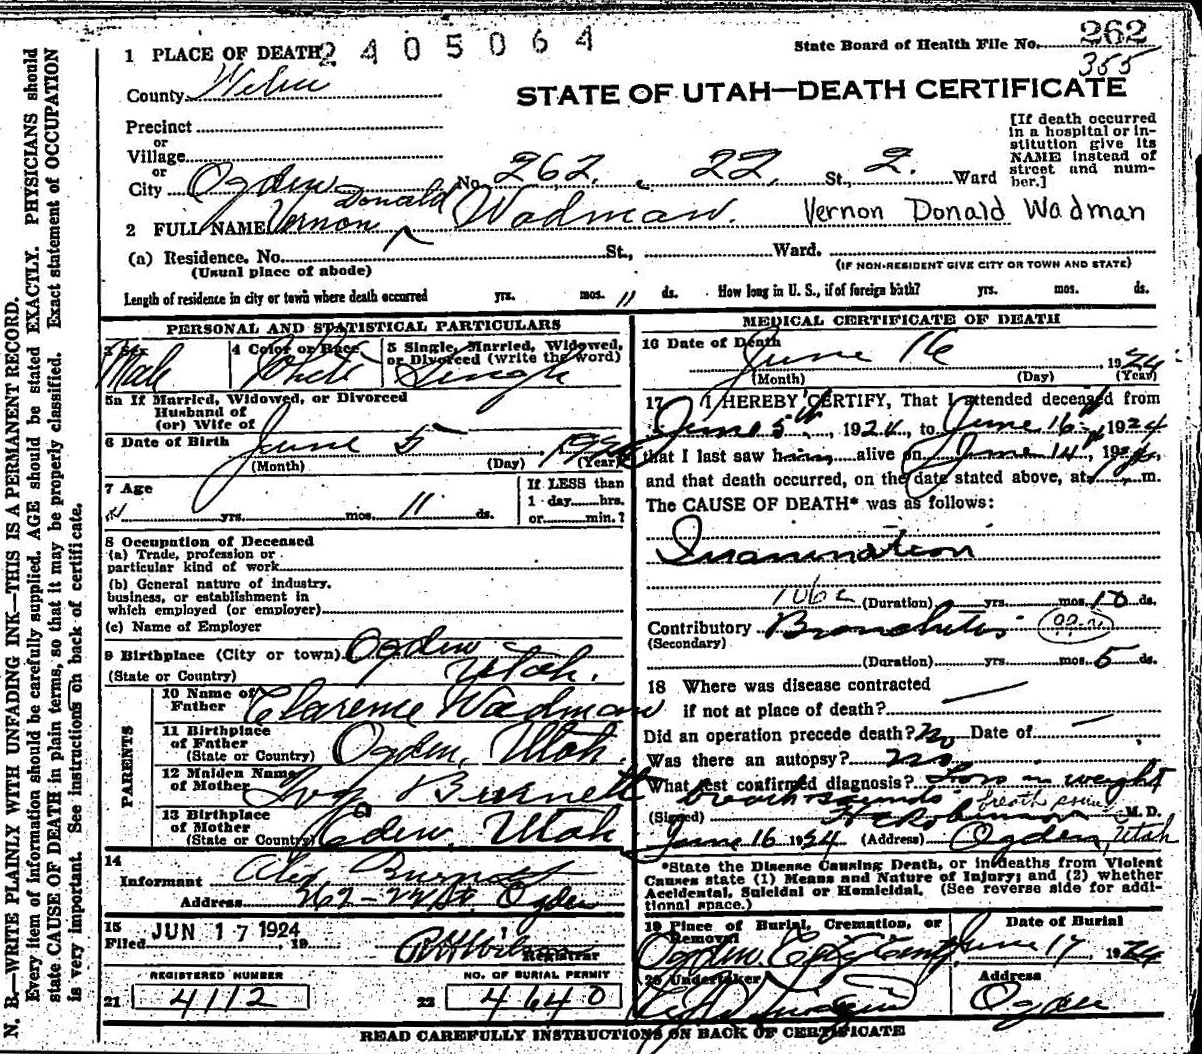 2405064
State Board of Health File No. 262
355
1 PLACE OF DEATH
County Weber
STATE OF UTAH—DEATH CERTIFICATE
Precinct
or
Village
or
City Ogden No. 262. 22. St., 2. Ward
[If death occurred
in a hospital or in-
stitution give its
NAME instead of
street and num-
ber.]
2 FULL NAME Vernon Donald Wadman. Vernon Donald Wadman
(a) Residence. No. St., Ward.
(Usual place of abode) (IF NON-RESIDENT GIVE CITY OR TOWN AND STATE)
Length of residence in city or town where death occurred yrs. mos. 11 ds. How long in U. S., if of foreign birth? yrs. mos. ds.
PERSONAL AND STATISTICAL PARTICULARS
3 Sex Male
4 Color or Race White
5 Single, Married, Widowed,
or Divorced (write the word)
Single
5a If Married, Widowed, or Divorced
Husband of
(or) Wife of
6 Date of Birth June 5 1924
(Month) (Day) (Year)
7 Age yrs. mos. 11 ds.
If LESS than
1 day hrs.
or min.?
8 Occupation of Deceased
(a) Trade, profession or
particular kind of work
(b) General nature of industry.
business, or establishment in
which employed (or employer)
(c) Name of Employer
9 Birthplace (City or town) Ogden
(State or Country) Utah.
PARENTS
10 Name of
Father Clarence Wadman
11 Birthplace
of Father
(State or Country) Ogden, Utah.
12 Maiden Name
of Mother Burnett
13 Birthplace
of Mother
(State or Country) Ogden, Utah
14
Informant Burnett
Address 262 - 22 St. Ogden
15
Filed JUN 17 1924 19
Registrar
REGISTERED NUMBER
21 4112
NO. OF BURIAL PERMIT
22 4640
MEDICAL CERTIFICATE OF DEATH
16 Date of Death
June 16 1924
(Month) (Day) (Year)
17 I HEREBY CERTIFY, That I attended deceased from
June 5th, 1924, to June 16th, 1924
that I last saw him alive on June 14th, 1924,
and that death occurred, on the date stated above, at m.
The CAUSE OF DEATH* was as follows:
Inanination
(Duration) yrs. mos. 10 ds.
Contributory Bronchitis
(Secondary)
(Duration) yrs. mos. 5 ds.
18 Where was disease contracted
if not at place of death?
Did an operation precede death? No Date of
Was there an autopsy? No.
What test confirmed diagnosis? Loss in weight
breath sounds breath sounds
(Signed) Robinson M. D.
June 16 1924 (Address) Ogden, Utah
*State the Disease Causing Death, or in deaths from Violent
Causes state (1) Means and Nature of Injury; and (2) whether
Accidental, Suicidal or Homicidal. (See reverse side for addi-
tional space.)
19 Place of Burial, Cremation, or
Removal
Ogden City Cemty.
Date of Burial
June 17 1924
20 Undertaker
Address
Ogden
READ CAREFULLY INSTRUCTIONS ON BACK OF CERTIFICATE
N. B.—WRITE PLAINLY WITH UNFADING INK—THIS IS A PERMANENT RECORD.
Every item of information should be carefully supplied. AGE should be stated EXACTLY. PHYSICIANS should
state CAUSE OF DEATH in plain terms, so that it may be properly classified. Exact statement of OCCUPATION
is very important. See instructions on back of certificate.